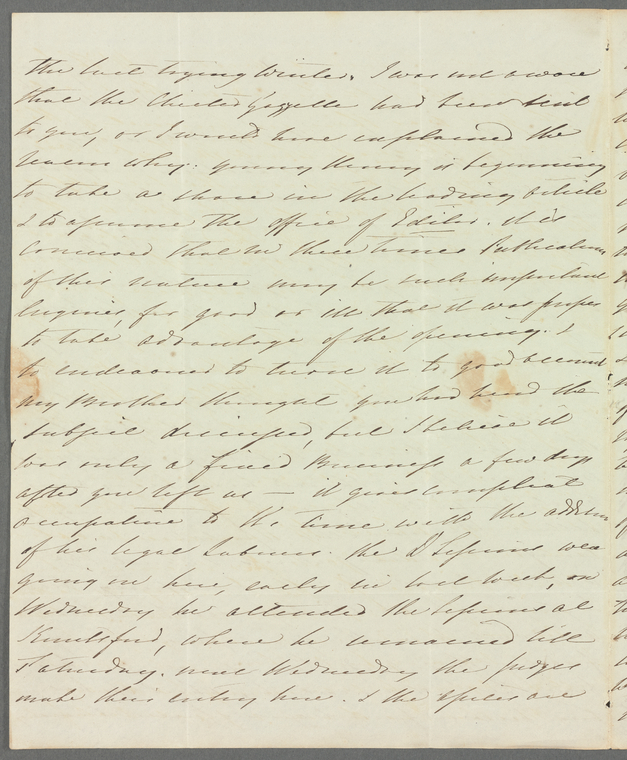 the last trying Winter. I was not aware
that the Chester Gazette had been sent
to you, or I would have explained the
reason why. young Henry is beginning
to take a share in the leading Article
& to assume the office of Editor. it is
conceived that in these times Publications
of this nature may be such important
Engines, for good or ill that it was proper
to take advantage of the opening. &
to endeavor to turn it to good account
my Brother thought you had heard the
subject discussed, but I believe it
was only a fixed Business a few days
after you left us — it gives compleat
occupation to his time with the addition
of his legal Labours. the Sessions were
going on here, early in last week, on
Wednesday he attended the Sessions at
Knutsford, where he remained till
Saturday. next Wednesday the Judges
make their entry here. & the assizes are